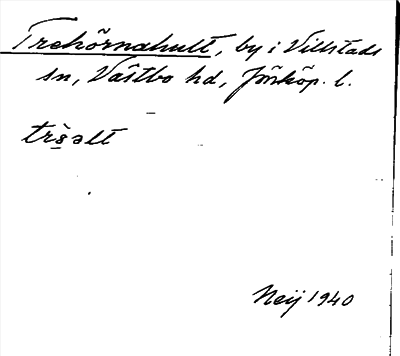 Trehörnahult, by i Villstads
sn, Västbo hd, Jönköp. l.
trs̱̀əlt
Neij 1940